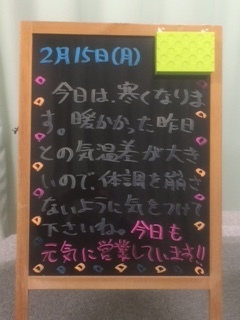 2月15日(月)
今日は、寒くなりま
す。暖かかった昨日
との気温差が大き
いので、体調を崩さ
ないように気をつけて
下さいね。今日も
元気に営業しています!!